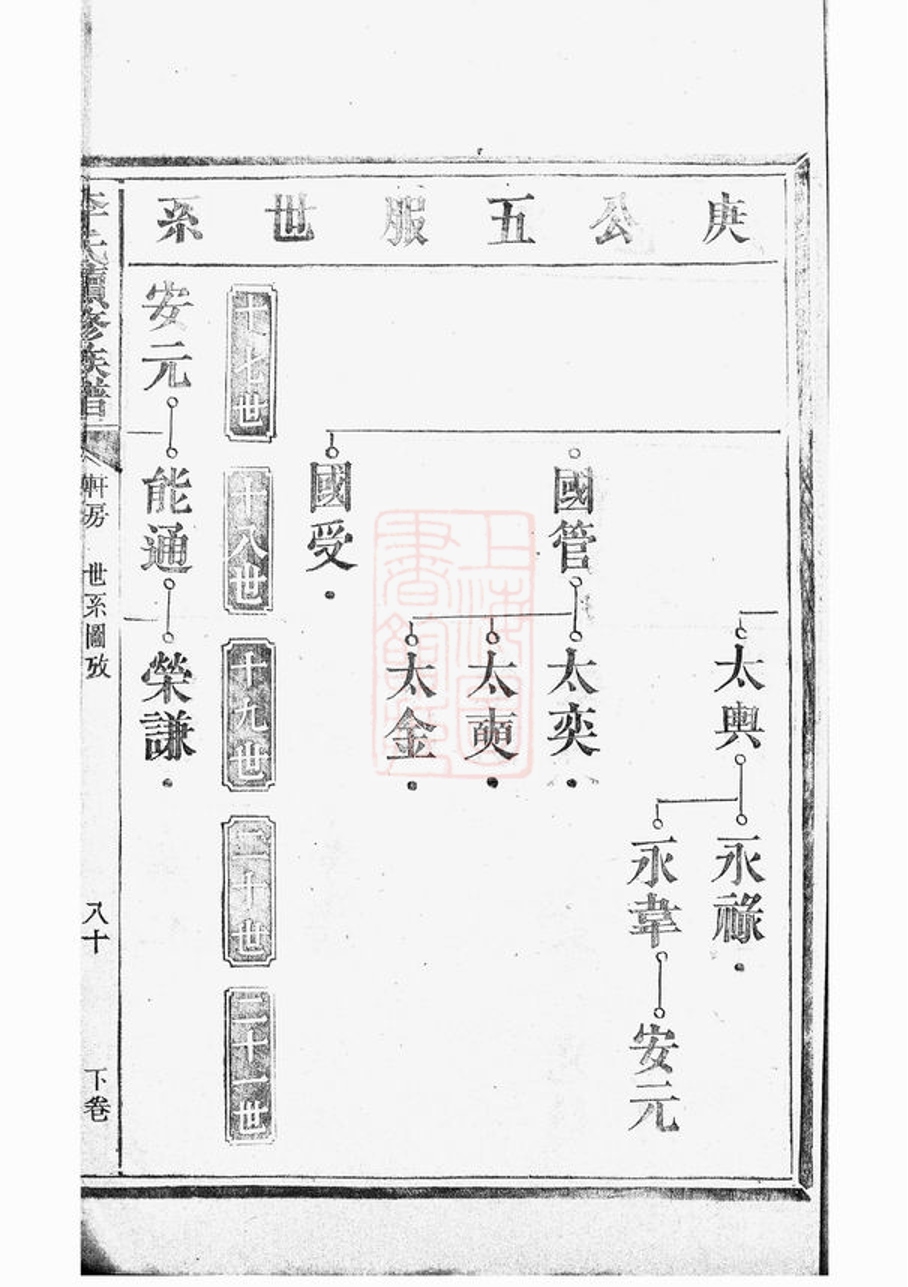 庚公五服世系
太輿
永祿
永韋
安元
國管
太奕
太奭
太金
國受
十七世
十八世
十九世
二十世
二十一世
安元
能通
榮謙
李氏續修族譜
軒房 世系圖攷
八十
下卷
上海圖書館藏